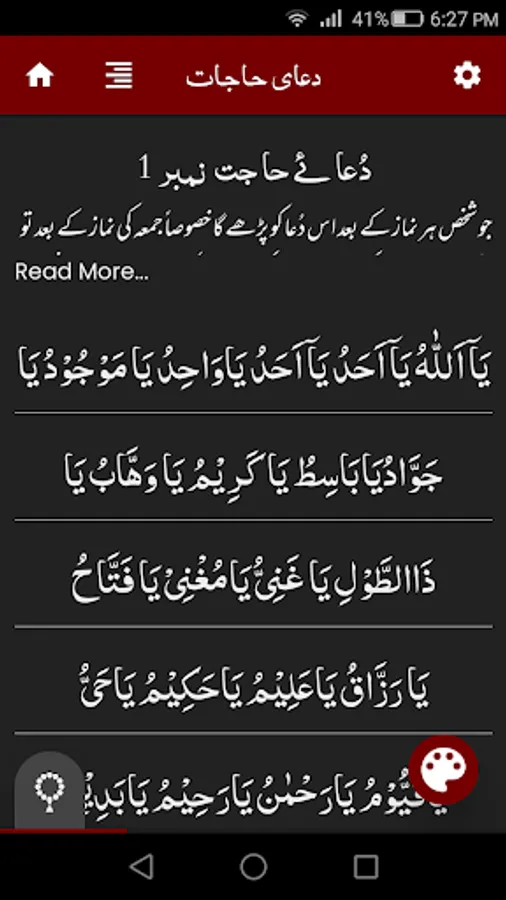 41% 6:27 PM
دعای حاجات
دُعائے حاجت نمبر 1
جو شخص ہر نماز کے بعد اس دُعا کو پڑھے گا خصوصاً جمعہ کی نماز کے بعد تو
Read More...
يَآ اَللّٰهُ يَآ اَحَدُ يَآ اَحَدُ يَا وَاحِدُ يَا مَوْجُوْدُ يَا
جَوَّادُ يَا بَاسِطُ يَا كَرِيْمُ يَا وَهَّابُ يَا
ذَاالطَّوْلِ يَا غَنِىُّ يَا مُغْنِىْ يَا فَتَّاحُ
يَا رَزَّاقُ يَا عَلِيْمُ يَا حَكِيْمُ يَا حَىُّ
يَا قَيُّوْمُ يَا رَحْمٰنُ يَا رَحِيْمُ